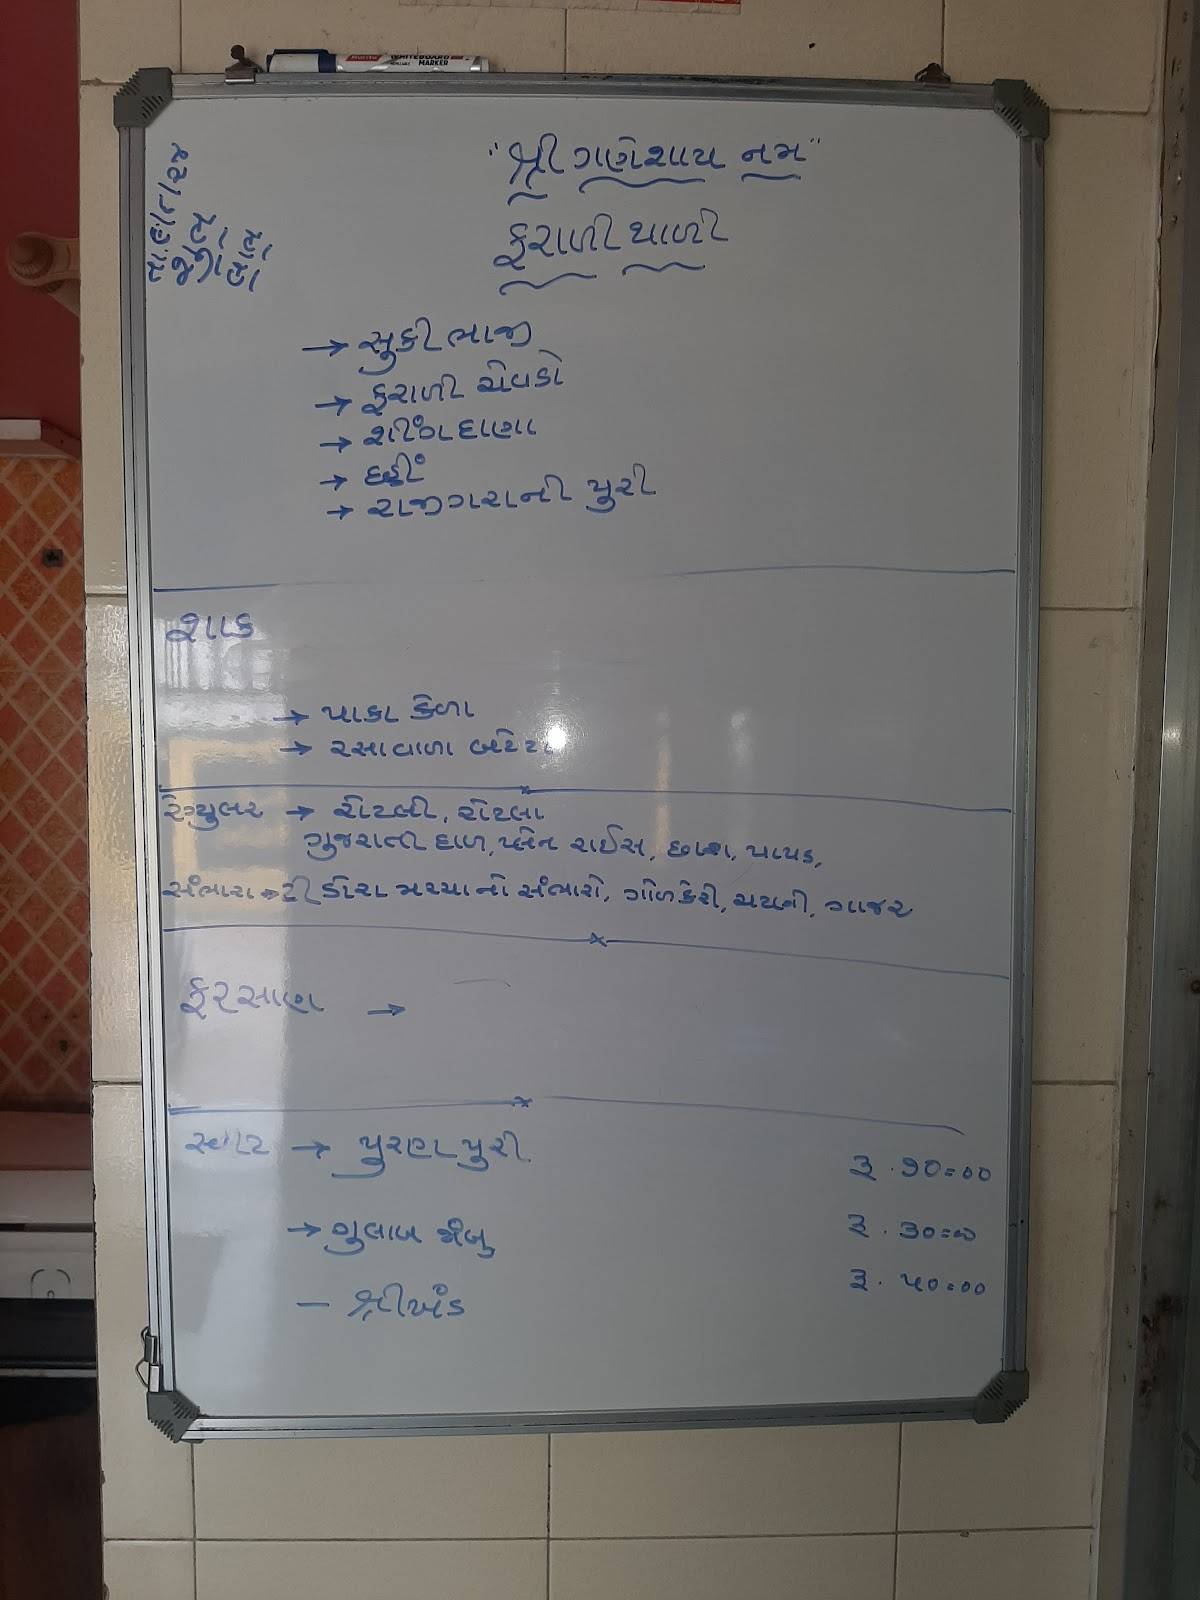 "શ્રી ગણેશાય નમ"
ફરાળી થાળી
→ સુકીભાજી
→ ફરાળી ચેવડો
→ શીંગદાણા
→ દહીં
→ રાજીગરાની પુરી
શાક
→ પાકા કેળા
→ રસાવાળા બટેટા
રેગ્યુલર → રોટલી, રોટલા
ગુજરાતી દાળ, પ્લેન રાઈસ, છાશ, પાપડ,
સંભારા → ટીંડોરા મરચાનો સંભારો, ગોળકેરી, ચટની, ગાજર
ફરસાણ →
સ્વીટ → પુરણપુરી રૂ. 90=00
→ ગુલાબ જાંબુ રૂ. 30=00
— શ્રીખંડ રૂ. ૫0=00
WHITEBOARD
MARKER